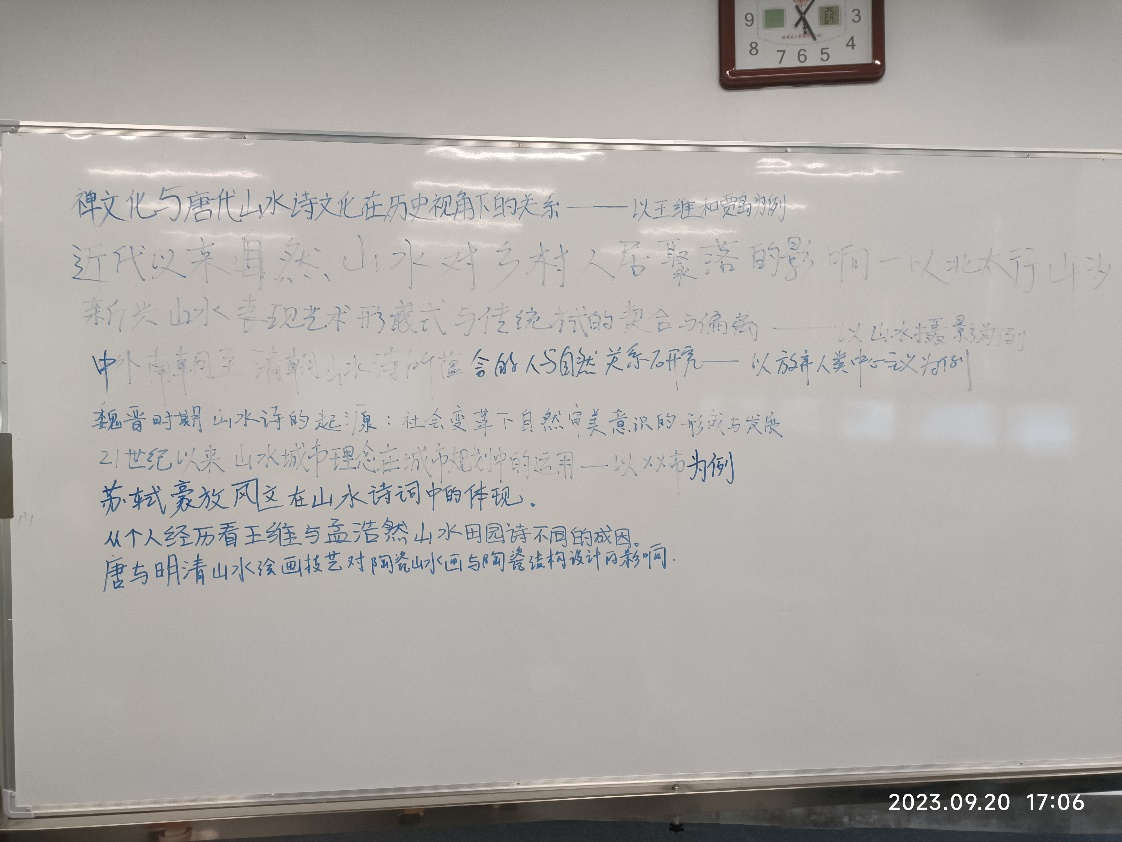 9 3
8 7 6 5 4
禅文化与唐代山水诗文化在历史视角下的关系——以王维和贾岛为例
近代以来自然、山水对乡村人居聚落的影响—以北太行山沙
新兴山水表现艺术形式与传统方式的契合与偏离——以山水摄影为例
中外南朝至清朝山水诗所蕴含的人与自然关系研究——以放弃人类中心主义为例
魏晋时期山水诗的起源：社会变革下自然审美意识的形成与发展
21世纪以来山水城市理念在城市规划中的运用——以XX市为例
苏轼豪放风文在山水诗词中的体现。
从个人经历看王维与孟浩然山水田园诗不同的成因。
唐与明清山水绘画技艺对陶瓷山水画与陶瓷结构设计的影响.
2023.09.20 17:06